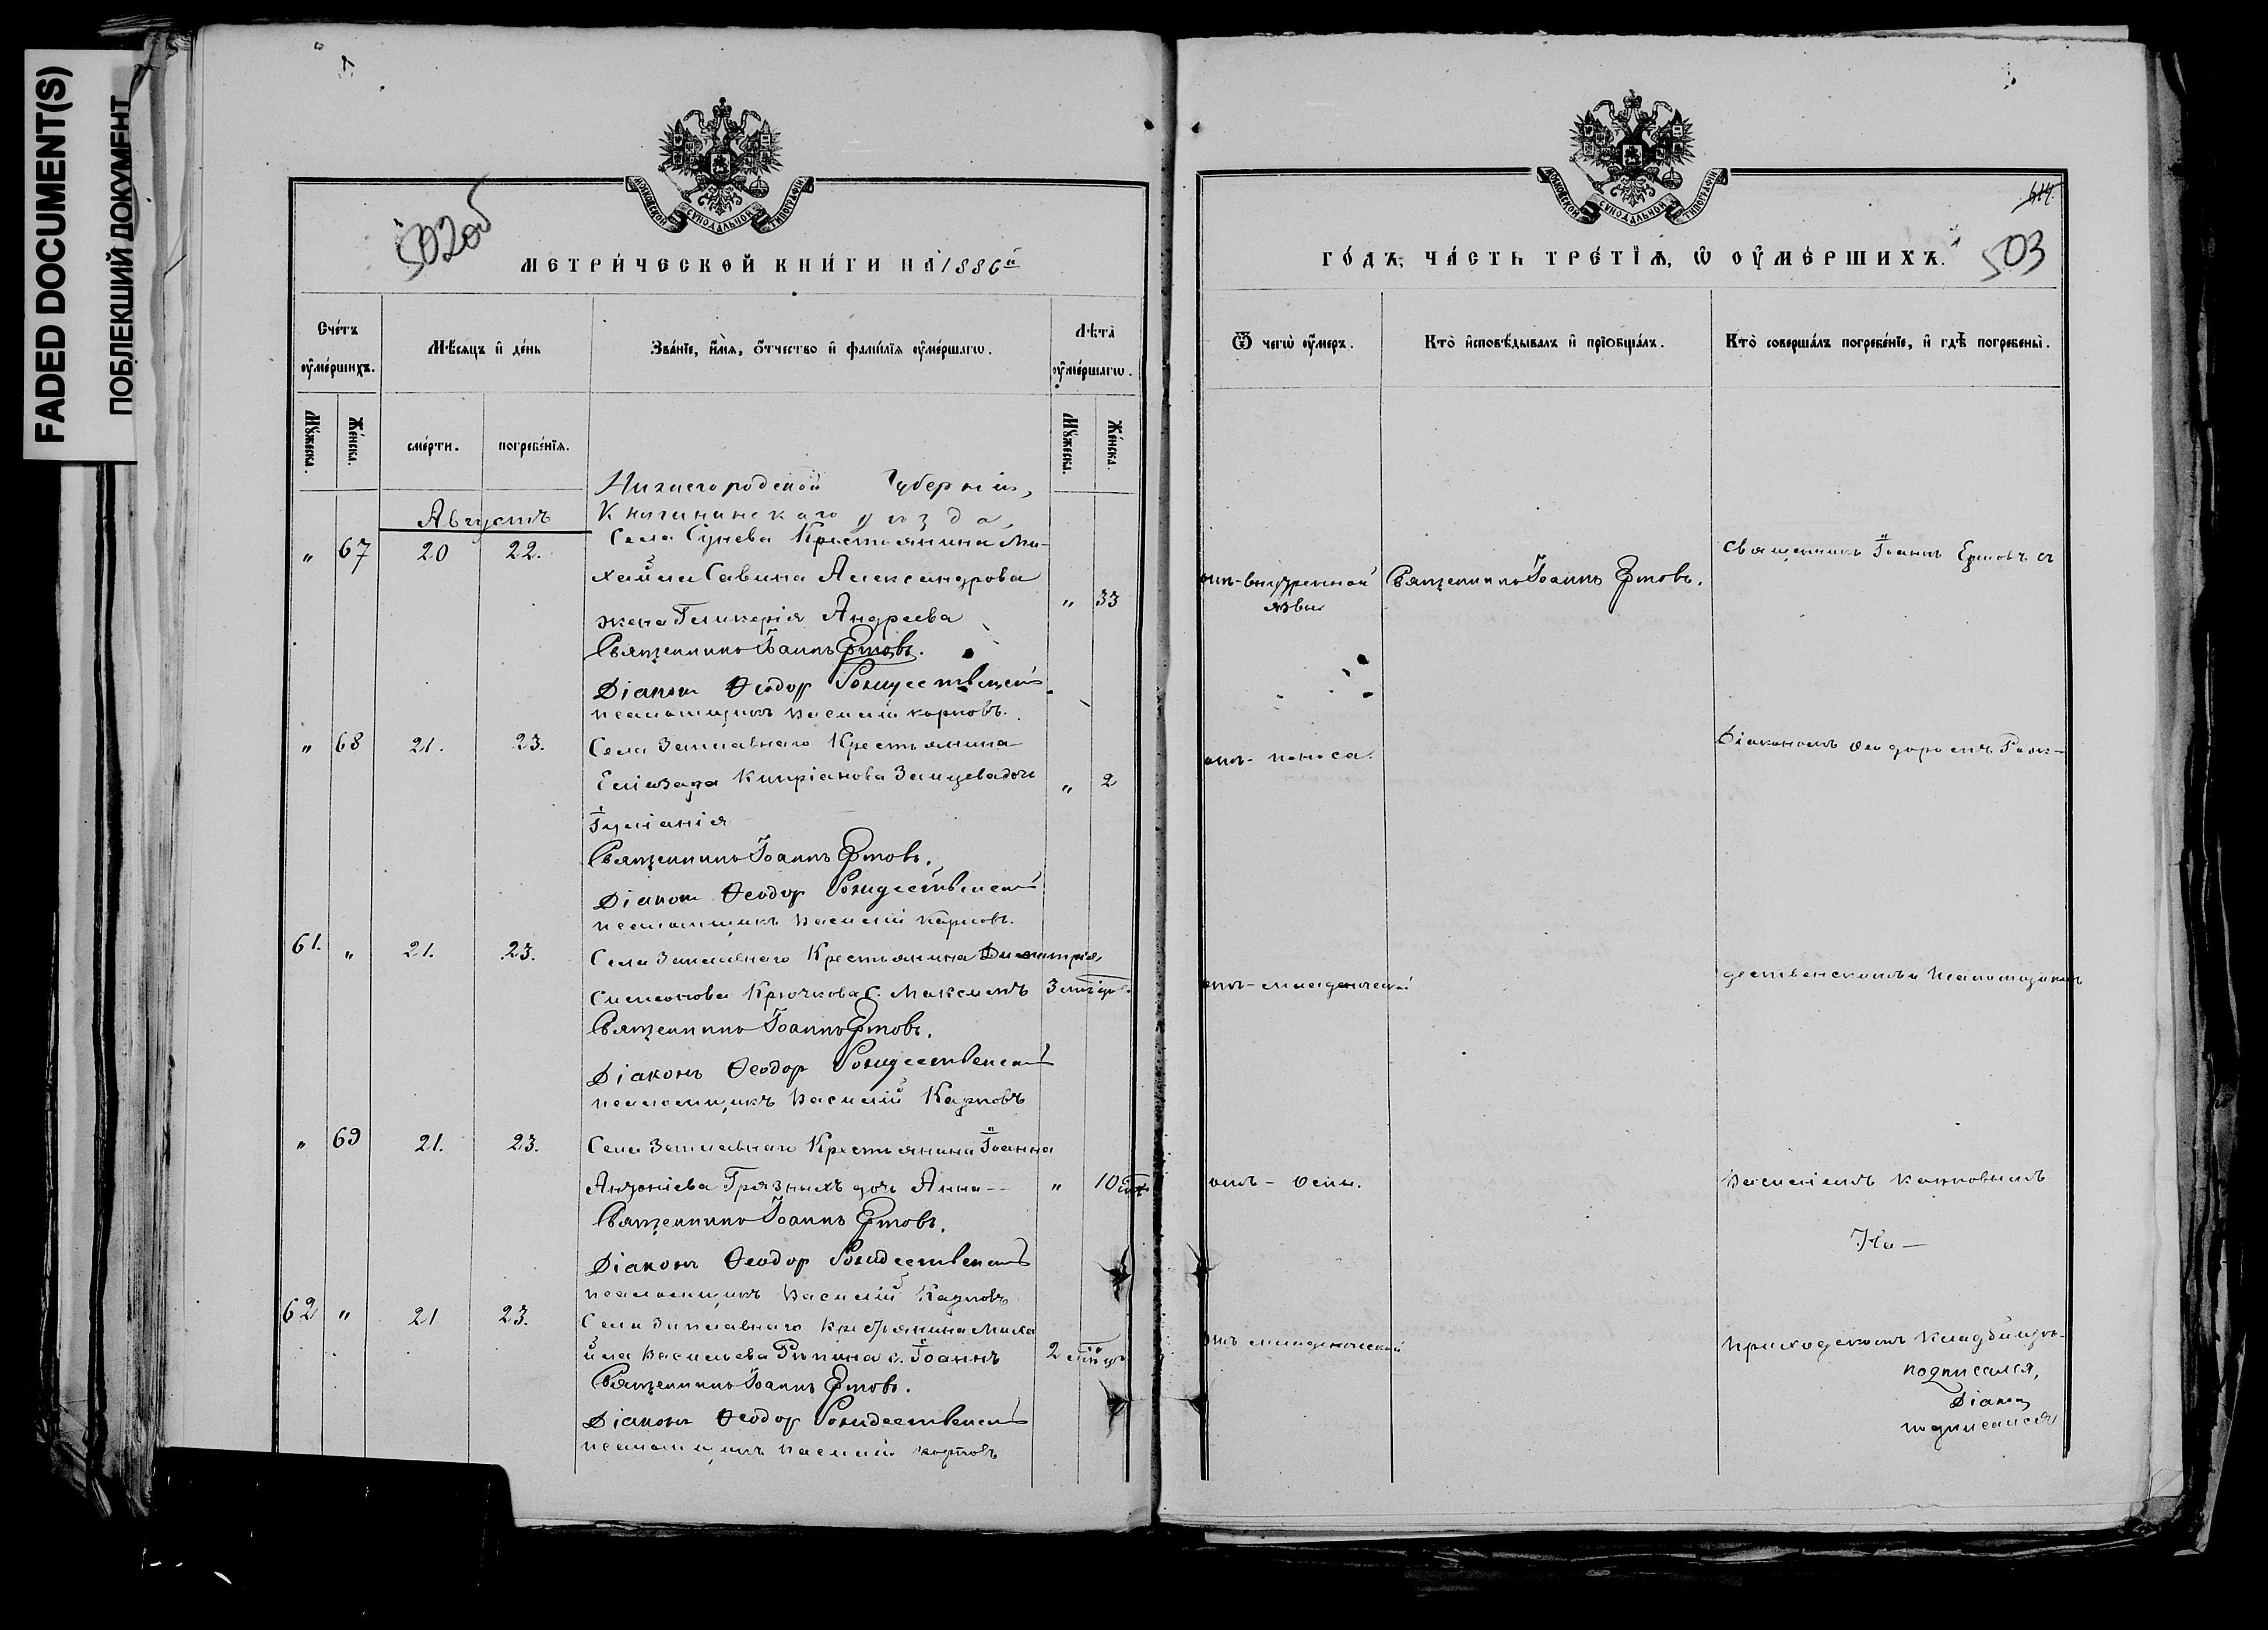 FADED DOCUMENT(S)
ПОБЛЕКШИЙ ДОКУМЕНТ
МОСКОВСКОЙ СУНОДАЛЬНОЙ ТИПОГРАФІИ
502об
МЕТРИ́ЧЕСКОЙ КНИ́ГИ НА 1886й
Счётъ ᲂу҆ме́ршихъ.
Мѣ́сяцъ и҆ де́нь
Зва́нїе, и҆́мѧ, ѻ҆́тчество и҆ фами́лїѧ ᲂу҆ме́ршагѡ.
Лѣ́та ᲂу҆ме́ршагѡ.
Мꙋ́жеска.
Же́нска.
сме́рти.
погребе́нїѧ.
Мꙋ́жеска.
Же́нска.
Нижегородской Губерніи,
Августъ
Княгининскаго уѣзда,
" 67 20 22.
Села Сунева Крестьянина Ми-
хаила Савина Александрова
жена Гликерія Андреева
" 33
Священникъ Іоаннъ Ертовъ.
Діаконъ Ѳеодор Рождественскій
псаломщикъ Василій Карповъ.
" 68 21. 23.
Села Заплавнаго Крестьянина
Еліазара Кипріанова Зайцева дочь
" 2
Іуліанія
Священникъ Іоаннъ Ертовъ.
Діаконъ Ѳеодор Рождественскій
псаломщикъ Василій Карповъ.
61. " 21. 23.
Села Заплавнаго Крестьянина Димитрія
Симеонова Крючкова с. Максимъ
3 мѣсяц.
Священникъ Іоаннъ Ертовъ.
Діаконъ Ѳеодор Рождественскій
псаломщикъ Василій Карповъ
" 69 21. 23.
Села Заплавнаго Крестьянина Іоанна
Антоніева Грязныхъ дочь Анна
" 10
Священникъ Іоаннъ Ертовъ.
Діаконъ Ѳеодор Рождественскій
псаломщикъ Василій Карповъ
62 " 21 23.
Села Заплавнаго Крестьянина Миха
ила Васильева Рѣпина с. Іоаннъ
2 мѣсяц
Священникъ Іоаннъ Ертовъ.
Діаконъ Ѳеодор Рождественскій
псаломщикъ Василій Карповъ
МОСКОВСКОЙ СУНОДАЛЬНОЙ ТИПОГРАФІИ
ГО́ДЪ, ЧА́СТЬ ТРЕ́ТЇѦ, Ѡ҆ ОУ҆МЕ́РШИХЪ.
503
Ѿ чегѡ̀ ᲂу҆́меръ.
Кто̀ и҆сповѣ́дывалъ и҆ прїѡбща́лъ.
Кто̀ соверша́лъ погребе́нїе, и҆ гдѣ̀ погребены̀.
отъ внутренной
язвы
Священникъ Іоаннъ Ертовъ.
Священникъ Іоаннъ Ертовъ съ
отъ поноса.
Діакономъ Ѳеодоромъ Рож-
отъ младенческой
дественскимъ и Псаломщикомъ
отъ Оспы.
Василіемъ Карповымъ
На
отъ младенческой
приходскомъ кладбищѣ
подписался,
Діаконъ
подписался